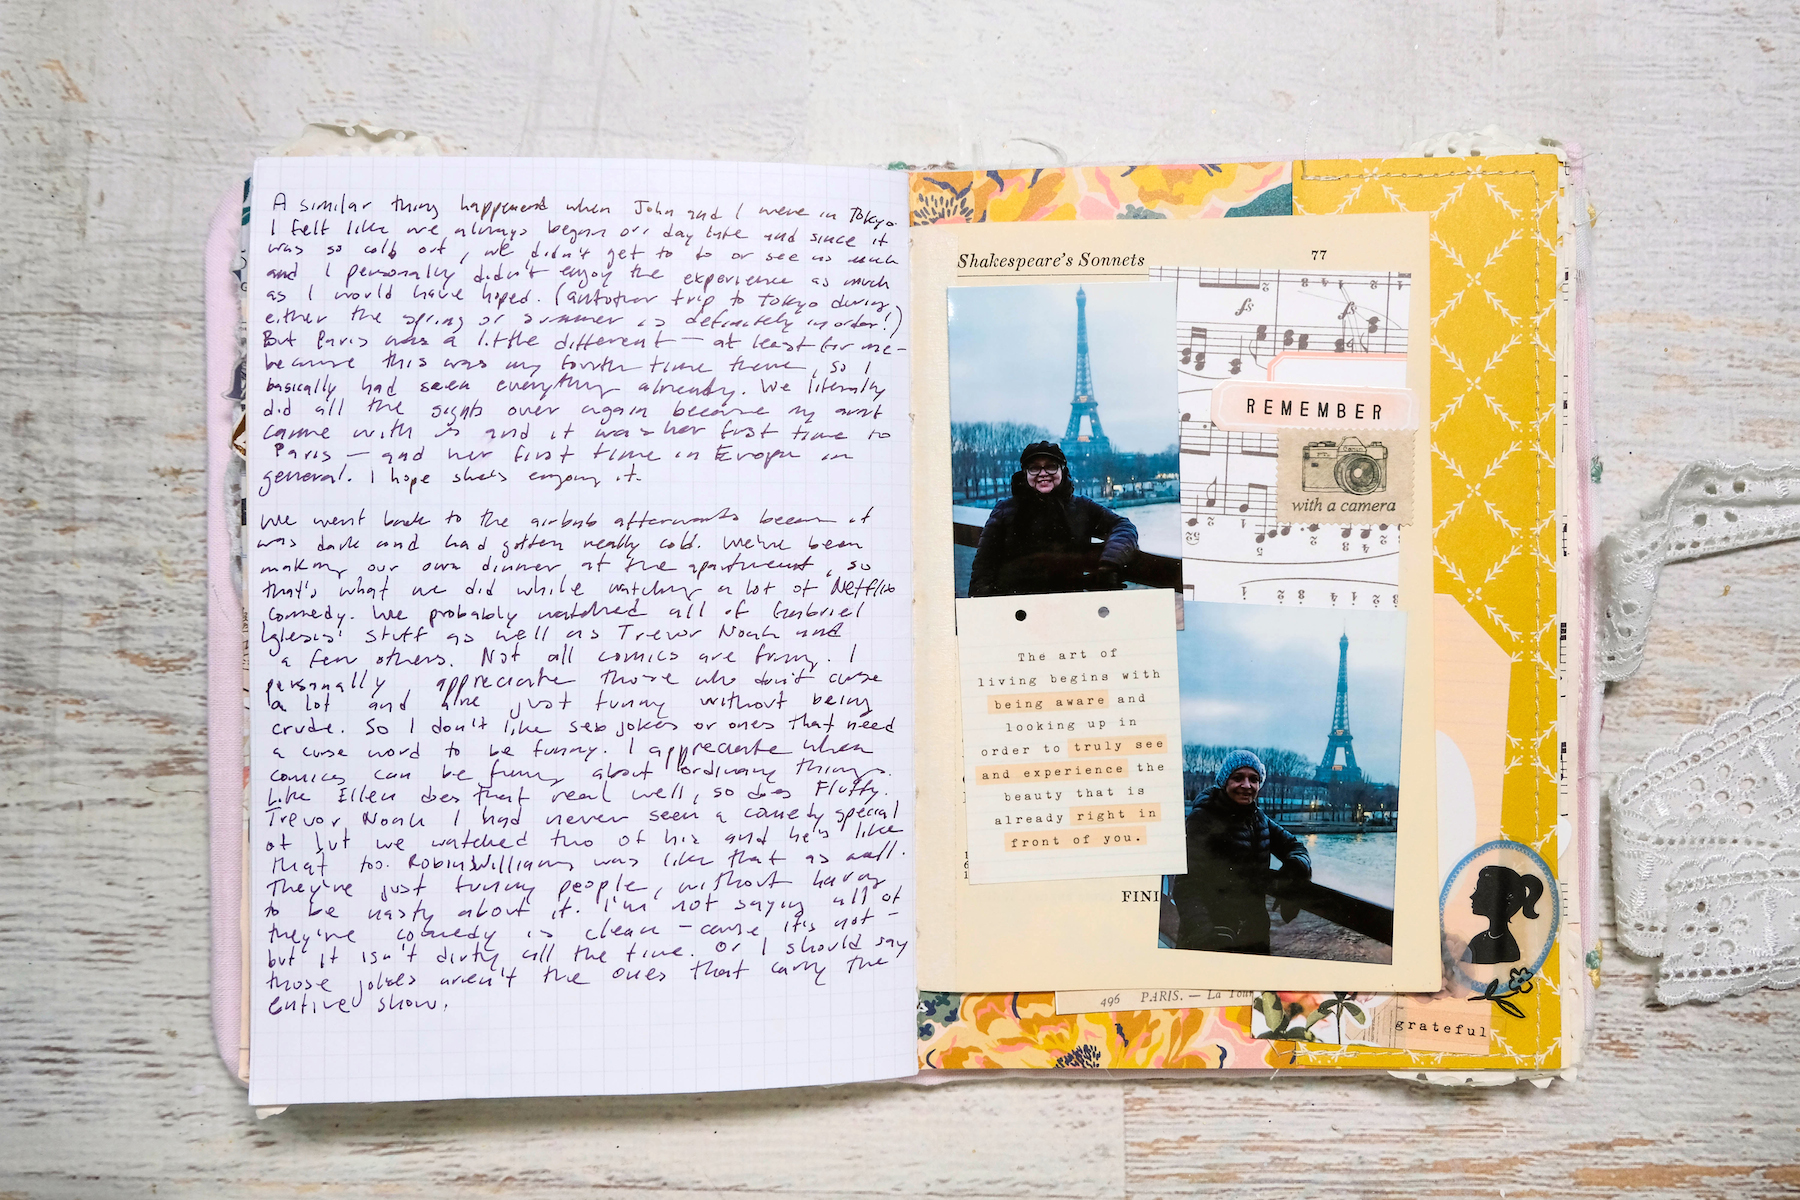 A similar thing happened when John and I were in Tokyo.
I felt like we always began our day late and since it
was so cold out, we didn't get to do or see as much
and I personally didn't enjoy the experience as much
as I would have hoped. (another trip to Tokyo during
either the spring or summer is definitely in order!)
But Paris was a little different — at least for me —
because this was my fourth time there, so I
basically had seen everything already. We literally
did all the sights over again because my aunt
came with us and it was her first time to
Paris — and her first time in Europe in
general. I hope she's enjoying it.
We went back to the airbnb afterwards because it
was dark and had gotten really cold. We've been
making our own dinner at the apartment, so
that's what we did while watching a lot of Netflix
comedy. We probably watched all of Gabriel
Iglesis' stuff as well as Trevor Noah and
a few others. Not all comics are funny. I
personally appreciate those who don't curse
a lot and are just funny without being
crude. So I don't like sex jokes or ones that need
a curse word to be funny. I appreciate when
comics can be funny about ordinary things.
Like Ellen does that real well, so does Fluffy.
Trevor Noah I had never seen a comedy special
of but we watched two of his and he's like
that too. Robin Williams was like that as well.
They're just funny people, without having
to be nasty about it. I'm not saying all of
they're comedy is clean — cause it's not —
but it isn't dirty all the time. Or I should say
those jokes aren't the ones that carry the
entire show.
Shakespeare's Sonnets 77
REMEMBER
with a camera
The art of
living begins with
being aware and
looking up in
order to truly see
and experience the
beauty that is
already right in
front of you.
FINI
496 PARIS. — La Tour
grateful